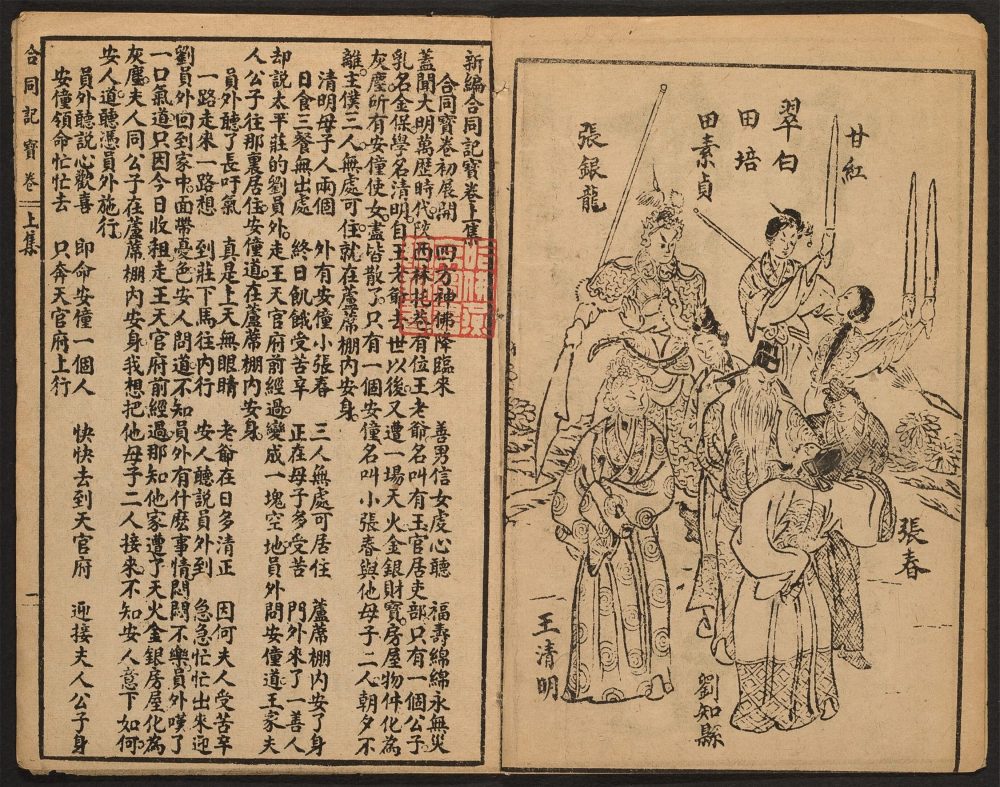 甘紅
翠白
田培
田素貞
張銀龍
張春
劉知縣
王清明
新編合同記寶卷上集
合同寶卷初展開 四方神佛降臨來 善男信女虔心聽 福壽綿綿永無災
蓋聞大明萬歷時代陝西林札巷有位王老爺名叫有王官居吏部只有一個公子
乳名金保學名清明自王老爺去世以後又遭一場天火金銀財寶房屋物件化為
灰塵所有安僮使女盡皆散了只有一個安僮名叫小張春與他母子二人朝夕不
離主僕三人無處可住就在蘆蓆棚內安身
清明母子人兩個 外有安僮小張春 三人無處可居住 蘆蓆棚內安了身
日食三餐無出處 終日飢餓受苦辛 正在母子多受苦 門外來了一善人
却說太平莊的劉員外走王天官府前經過變成一塊空地員外問安僮道王家夫
人公子往那裏居住安僮道在蘆蓆棚內安身
員外聽了長吁氣 真是上天無眼睛 老爺在日多清正 因何夫人受苦辛
一路走來一路想 到莊下馬往內行 安人聽說員外到 急急忙忙出來迎
劉員外回到家中面帶憂色安人問道不知員外有什麽事情悶悶不樂員外嘆了
一口氣道只因今日收租走王天官府前經過那知他家遭了天火金銀房屋化為
灰塵夫人同公子在蘆蓆棚內安身我想把他母子二人接來不知安人意下如何
安人道聽憑員外施行
員外聽說心歡喜 即命安僮一個人 快快去到天官府 迎接夫人公子身
安僮領命忙忙去 只奔天官府上行
合同記寶卷 上集 一